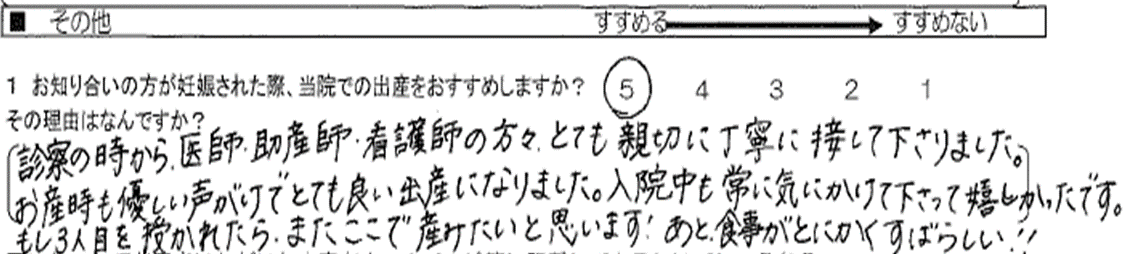 ■ その他 すすめる すすめない
1 お知り合いの方が妊娠された際、当院での出産をおすすめしますか？ 5 4 3 2 1
その理由はなんですか？
診察の時から、医師・助産師・看護師の方々、とても親切に丁寧に接して下さりました。
お産時も優しい声がけでとても良い出産になりました。入院中も常に気にかけて下さって嬉しかったです。
もし3人目を授かれたら、またここで産みたいと思います！あと、食事がとにかくすばらしい!!